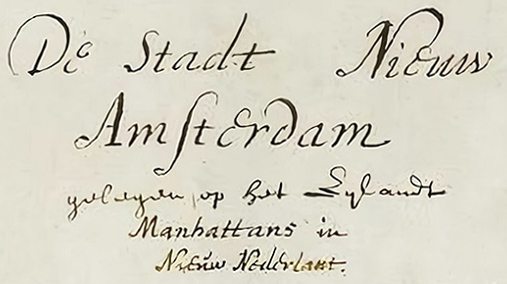 De Stadt Nieuw
Amsterdam
gelegen op het Eylandt
Manhattans in
Nieuw Nederlant.